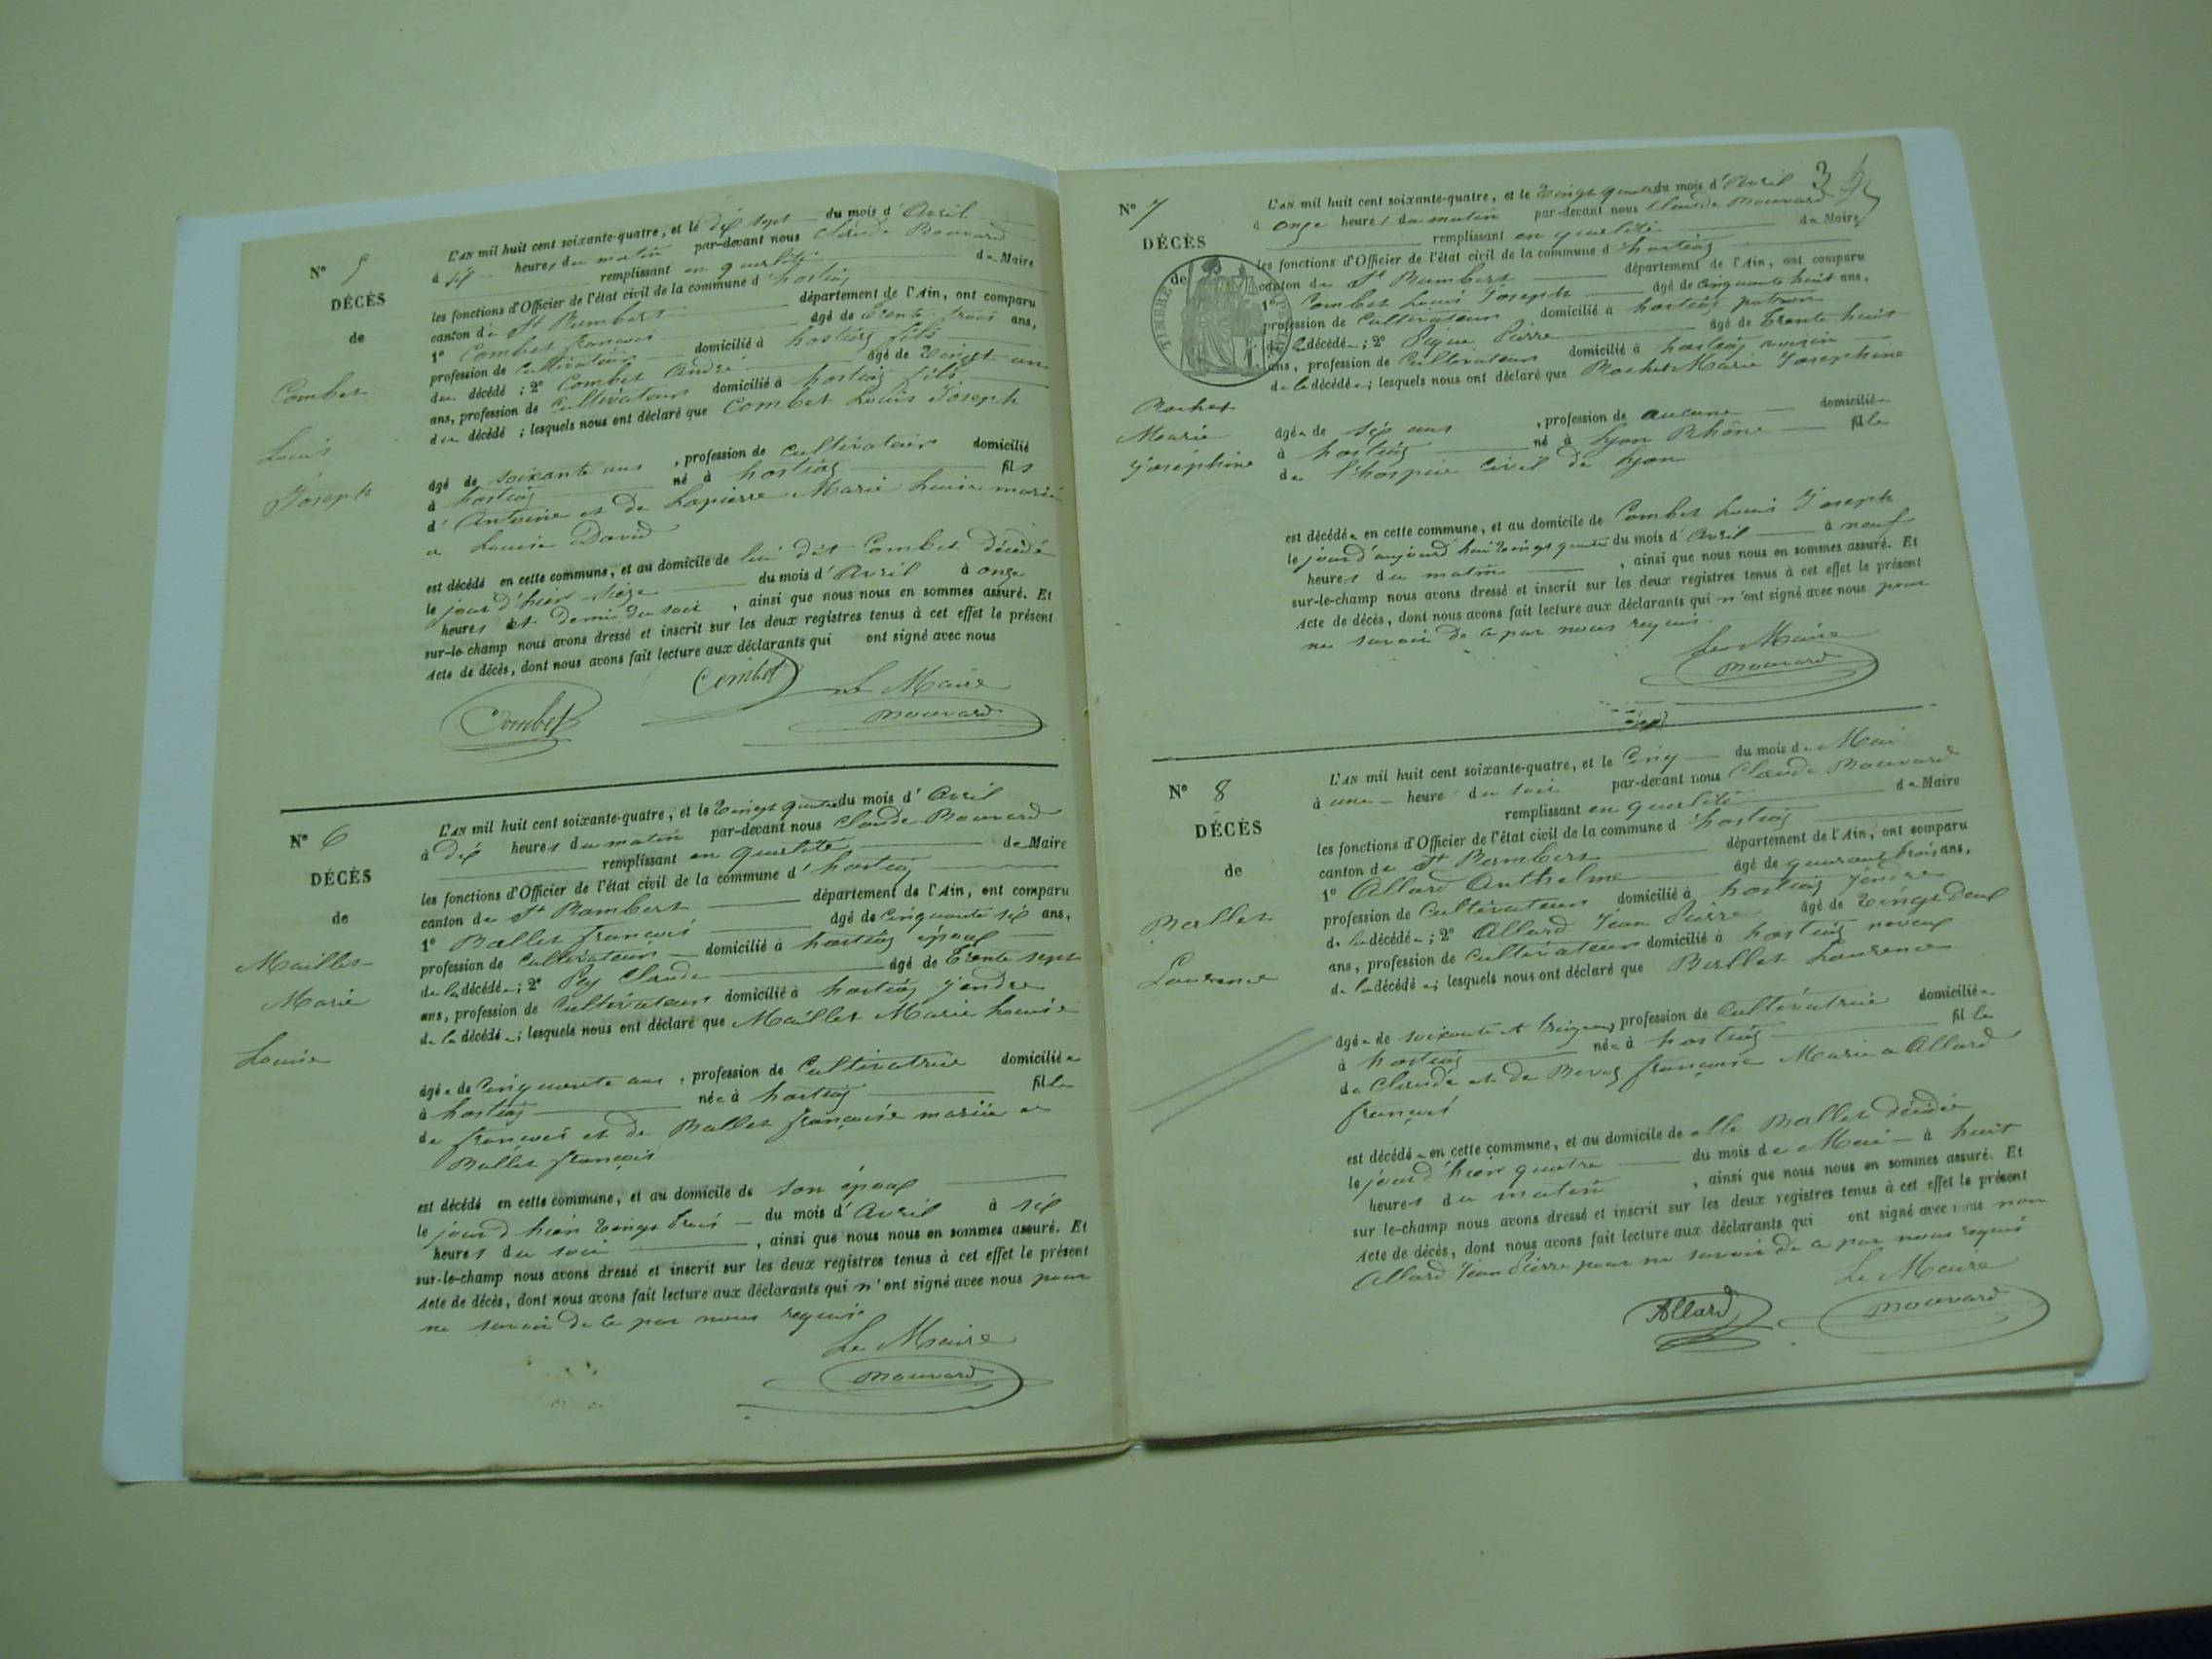 N° 5
DÉCÈS
de
Combet
Louis
Joseph
L'AN mil huit cent soixante-quatre, et le dix sept du mois d'Avril
à six heures du matin par-devant nous Claude Bouvard
remplissant en qualité de Maire
les fonctions d'Officier de l'état civil de la commune d'hostiaz
canton de St Rambert département de l'Ain, ont comparu
1° Combet francois âgé de trente trois ans,
profession de Cultivateur domicilié à hostiaz fils
du décédé ; 2° Combet André âgé de vingt un
ans, profession de Cultivateur domicilié à hostiaz fils
du décédé ; lesquels nous ont déclaré que Combet Louis Joseph
âgé de soixante ans , profession de Cultivateur domicilié
à hostiaz né à hostiaz fils
d'Antoine et de Lapierre Marie Louise marié
a Louise David
est décédé en cette commune, et au domicile de lui dit Combet décédé
le jour d'hier Sieze du mois d'Avril à onze
heures et demi du soir , ainsi que nous nous en sommes assuré. Et
sur-le-champ nous avons dressé et inscrit sur les deux registres tenus à cet effet le présent
Acte de décès, dont nous avons fait lecture aux déclarants qui ont signé avec nous
Combet Combet Le Maire
Bouvard
N° 6
DÉCÈS
de
Maillet
Marie
Louise
L'AN mil huit cent soixante-quatre, et le vingt quatre du mois d'Avril
à dix heures du matin par-devant nous Claude Bouvard
remplissant en qualité de Maire
les fonctions d'Officier de l'état civil de la commune d'hostiaz
canton de St Rambert département de l'Ain, ont comparu
1° Ballet francois âgé de Cinquante six ans,
profession de Cultivateur domicilié à hostiaz époux
de la décédée ; 2° Pey Claude âgé de trente sept
ans, profession de Cultivateur domicilié à hostiaz gendre
de la décédée ; lesquels nous ont déclaré que Maillet Marie Louise
âgée de Cinquante ans , profession de Cultivatrice domiciliée
à hostiaz née à hostiaz fille
de françois et de Ballet françoise mariée a
Ballet françois
est décédé en cette commune, et au domicile de son époux
le jour d'hier vingt trois du mois d'Avril à six
heures du soir , ainsi que nous nous en sommes assuré. Et
sur-le-champ nous avons dressé et inscrit sur les deux registres tenus à cet effet le présent
Acte de décès, dont nous avons fait lecture aux déclarants qui n'ont signé avec nous pour
ne savoir de ce par nous requis
Le Maire
Bouvard
3
N° 7
DÉCÈS
de
TIMBRE
Rochet
Marie
Joséphine
L'AN mil huit cent soixante-quatre, et le vingt quatre du mois d'Avril
à onze heures du matin par-devant nous Claude Bouvard
remplissant en qualité de Maire
les fonctions d'Officier de l'état civil de la commune d'hostiaz
canton de St Rambert département de l'Ain, ont comparu
1° Combet Louis Joseph âgé de Cinquante huit ans,
profession de Cultivateur domicilié à hostiaz patron
de la décédée ; 2° Pierre âgé de trente huit
ans, profession de Cultivateur domicilié à hostiaz voisin
de la décédée ; lesquels nous ont déclaré que Rochet Marie Josephine
âgée de six ans , profession de aucune domiciliée
à hostiaz né à Lyon Rhône fille
de l'hospice Civil de Lyon
est décédée en cette commune, et au domicile de Combet Louis Joseph
le jour d'aujourd'hui vingt quatre du mois d'Avril à neuf
heures du matin , ainsi que nous nous en sommes assuré. Et
sur-le-champ nous avons dressé et inscrit sur les deux registres tenus à cet effet le présent
Acte de décès, dont nous avons fait lecture aux déclarants qui n'ont signé avec nous pour
ne savoir de ce par nous requis.
Le Maire
Bouvard
N° 8
DÉCÈS
de
Ballet
Laurence
L'AN mil huit cent soixante-quatre, et le Cinq du mois de Mai
à une heure du soir par-devant nous Claude Bouvard
remplissant en qualité de Maire
les fonctions d'Officier de l'état civil de la commune d'hostiaz
canton de St Rambert département de l'Ain, ont comparu
1° Allard Anthelme âgé de quarante trois ans,
profession de Cultivateur domicilié à hostiaz gendre
de la décédée ; 2° Allard Jean Pierre âgé de vingt deux
ans, profession de Cultivateur domicilié à hostiaz neveux
de la décédée ; lesquels nous ont déclaré que Ballet Laurence
âgée de soixante et treize ans, profession de Cultivatrice domiciliée
à hostiaz née à hostiaz fille
de Claude et de françoise Marie a Allard
françois
est décédée en cette commune, et au domicile de elle Ballet décédée
le jour d'hier quatre du mois de Mai à huit
heures du matin , ainsi que nous nous en sommes assuré. Et
sur le-champ nous avons dressé et inscrit sur les deux registres tenus à cet effet le présent
Acte de décès, dont nous avons fait lecture aux déclarants qui ont signé avec nous non
Allard Jean Pierre pour ne savoir de ce par nous requis
Le Maire
Allard Bouvard